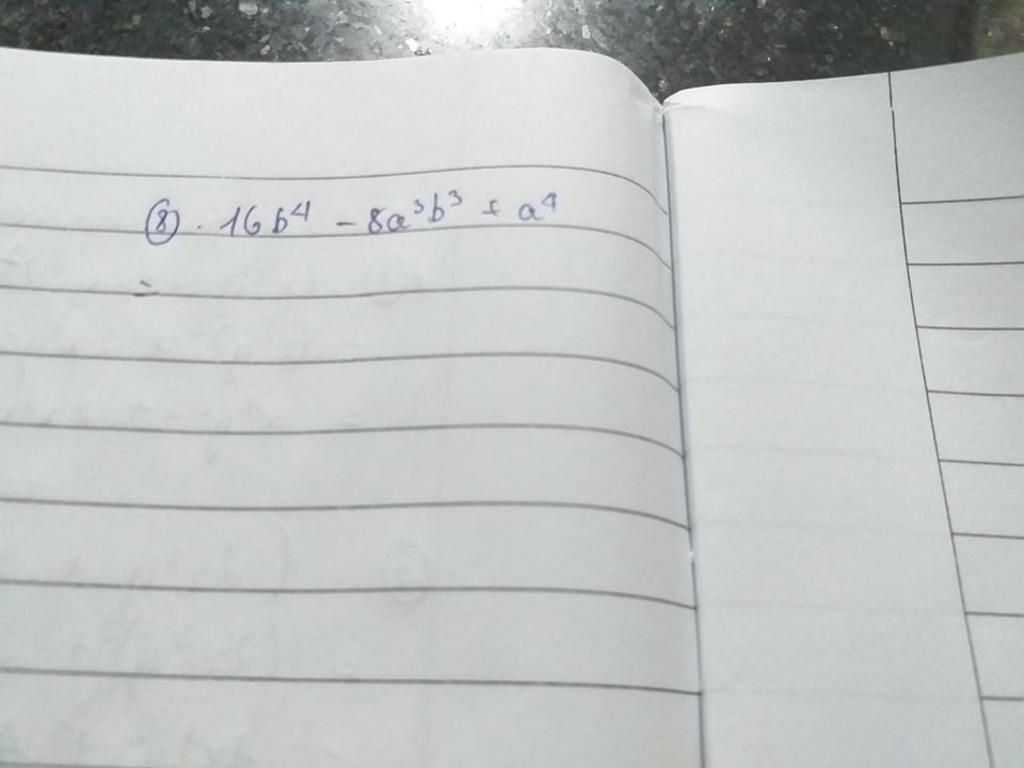 ⑧. 16b⁴ - 8a³b³ + a⁴
=